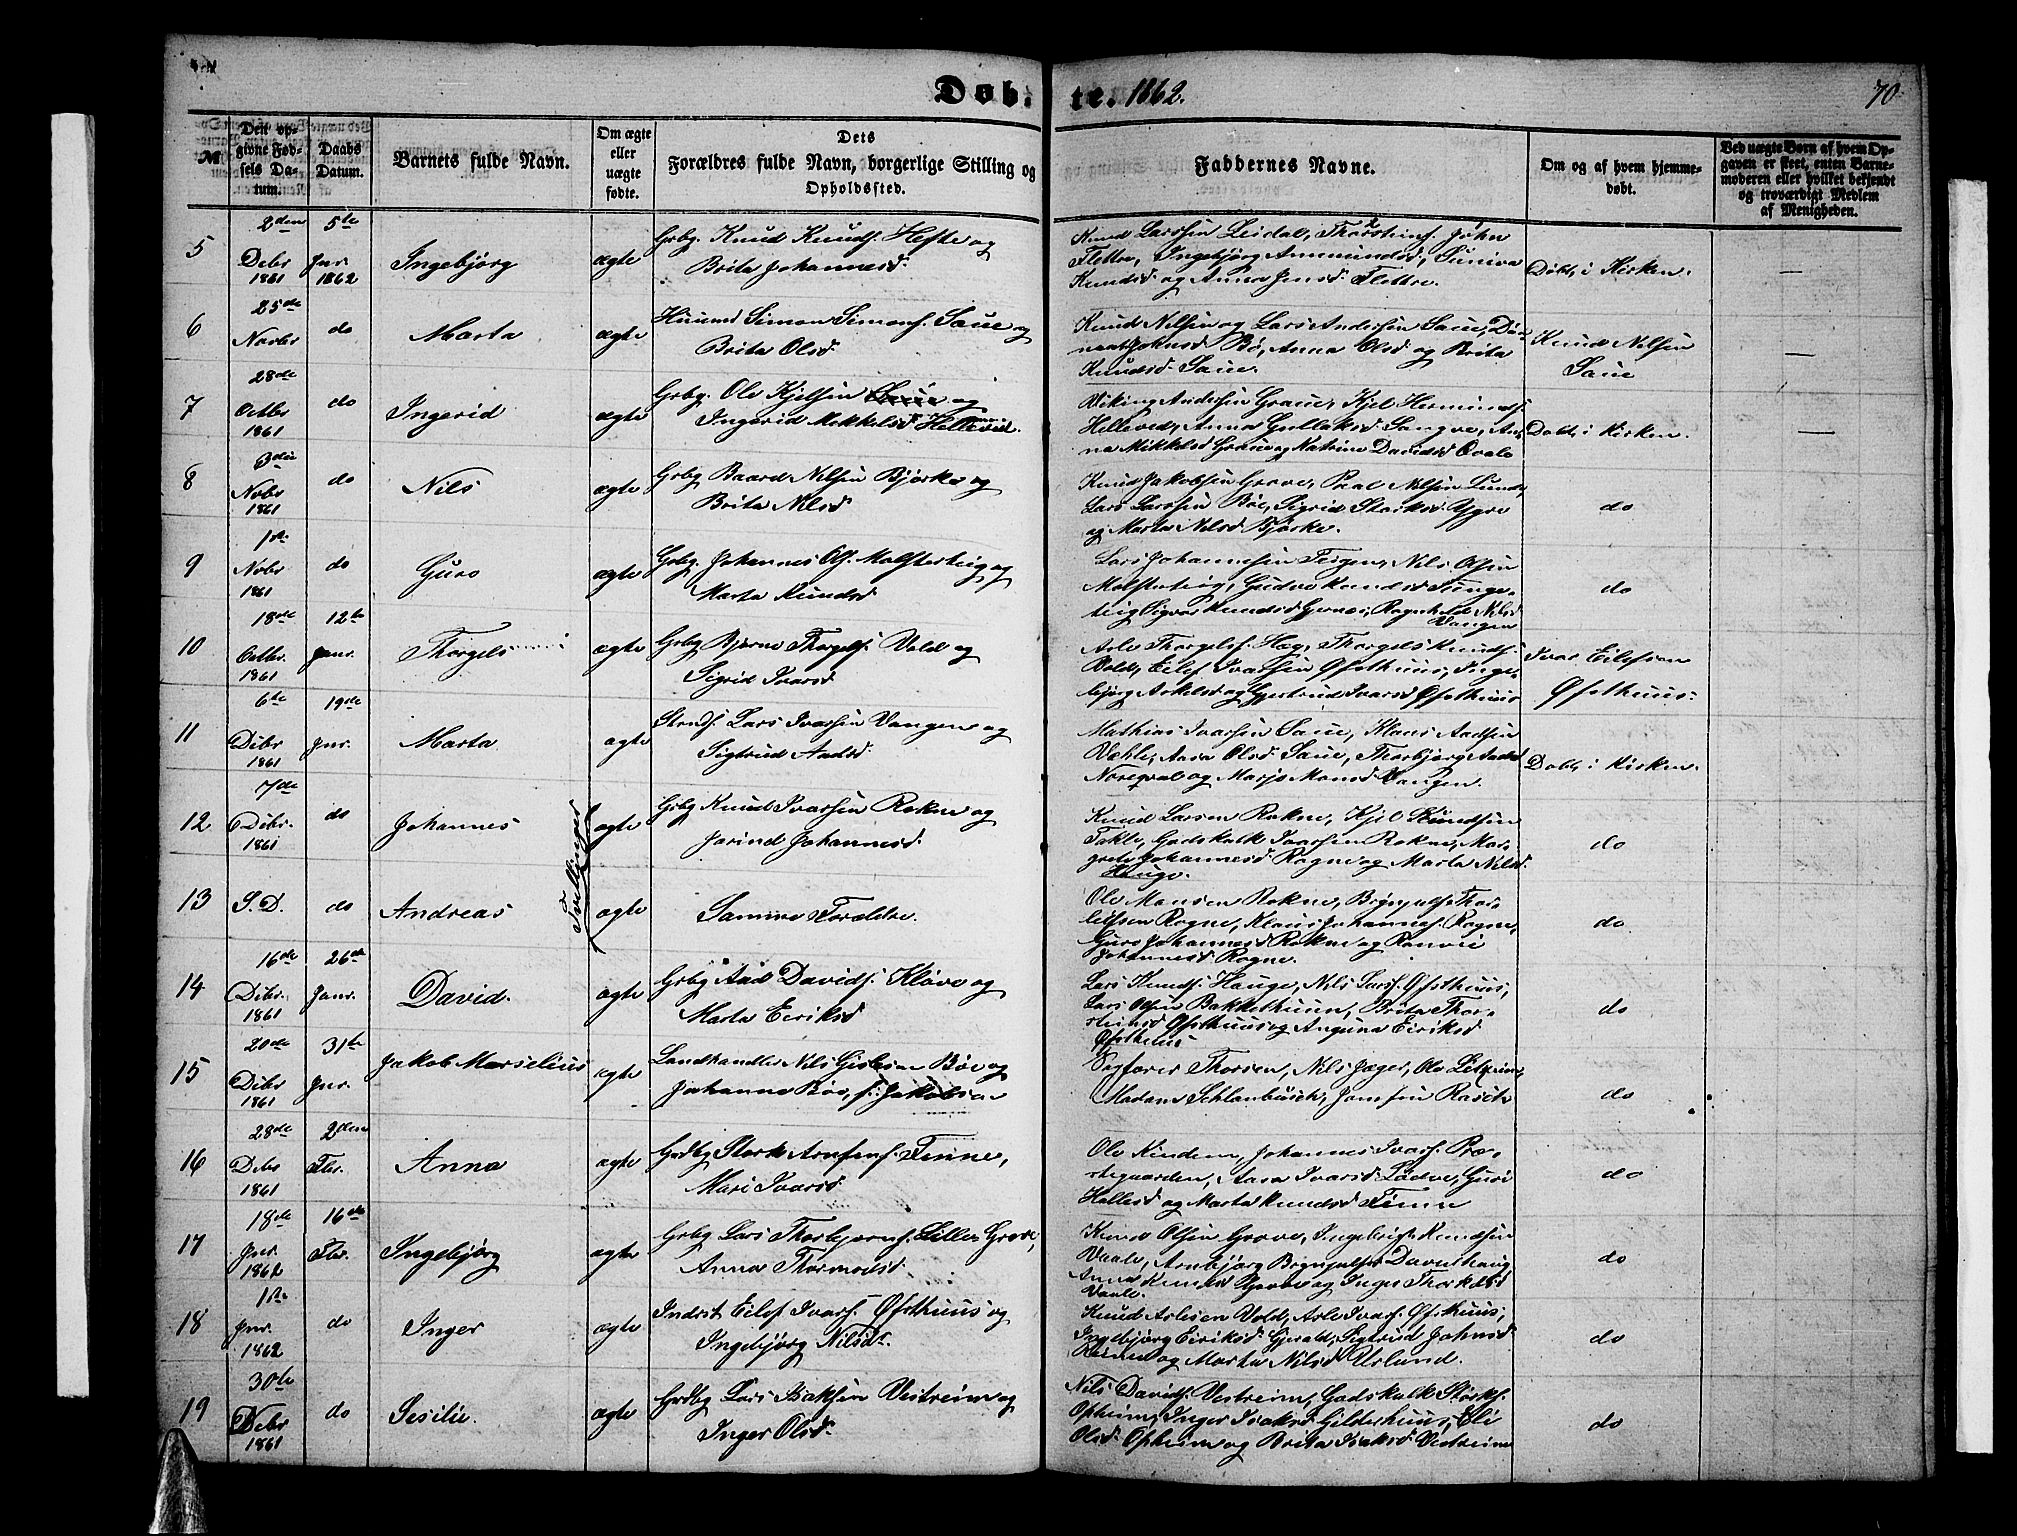 Døb-te. 1862.
70
№
Den op-
givne Fød-
sels Da-
tum.
Daabs
Datum.
Barnets fulde Navn.
Om ægte
eller
uægte
fødte.
Dets
Forældres fulde Navn, borgerlige Stilling og
Opholdssted.
Faddernes Navne.
Om og af hvem hjemme-
døbt.
Ved uægte Børn af hvem Op-
gaven er skeet, enten Barne-
moderen eller hvilket bekjendt
og troværdigt Medlem
af Menigheden.
5
2den
Debr
1861
5te
Jnr.
1862
Ingebjørg
ægte
Grbg. Knud Knuds. Hefte og
Brita Johannesd.
Knud Larssen Leidal, Thorsteins. John
Flettre, Ingebjørg Ammundsd, Suniva
Knudsd og Anna Jensd Flettre.
Døbt i Kirken.
—
6
25de
Novbr
do
Marta
ægte
Huusmd Simon Simons. Saue og
Brita Olsd
Knud Nilsen og Lars Andersen Saue,
Johnsd Bø, Anna Olsd og Brita
Knudsd Saue.
Knud Nilsen
Saue
—
7
28de
Octbr
1861
do
Ingerid
ægte
Grbg. Ole Kjelsen og
Ingerid Mikkelsd Hellevid.
Viking Andersen Graue, Kjel Hermunds.
Helleved, Anna Gulleksd Langve, An-
na Mikkelsd Graue og Katrine Davidsd Qvale
Døbt i Kirken.
—
8
3die
Novbr
1861
do
Nils
ægte
Grbg Baard Nilsen Bjørke og
Brita Nilsd
Knud Jakobsen Grove, Paal Nilsen Lund,
Lars Larssen Bøe, Sigrid Storksd Ygre
og Marta Nilsd Bjørke.
do
9
1ste
Novbr
1861
do
Guro
ægte
Grbg. Johannes Ols. Molsterteig og
Marta Knudsd
Lars Johannesen Teigen, Nils Olsen
Molsterteig, Gudve Knudsd Tunge-
teig Sigvor Knudsd Gjerne, Ragnhild Nilsd
Vangen
do
10
18de
Octbr.
1861
12te
Janr.
Thorgels
ægte
Grbg Bjørne Thorgels. Vold og
Sigrid Ivarsd
Asle Thorgels. Hæg, Thorgels Knuds.
Vold, Eilef Ivarssen Øfsthuus, Inge-
bjørg Askelsd og Gjertrud Ivarsd Øfsthuus
Ivar Eilefsen
Øfsthuus.
11
6te
Debr
1861
19de
Jnr.
Marta
ægte
Strands. Lars Ivarssen Vangen og
Sigtrud Aadsd.
Mathias Ivarssen Saue, Klaus Aadsen
Væhle, Aasa Olsd Saue, Thorbjørg Aadsd
Noreqval og Marjo Monsd Vangen.
Døbt i Kirken.
12
7de
Debr.
1861
do
Johannes
Tvillinger
ægte
Grbg Knud Ivarssen Rokne og
Jorind Johannesd
Knud Larsen Rokne, Kjel Knudsen
Takle, Godskalk Ivarssen Rokne, Mar-
grete Johannesd Rogne og Marta Nilsd.
Hauge.
do
13
S. D.
do
Andreas
ægte
Samme Forældre.
Ole Monsen Rokne, Brynjulf Thor-
leifsen Rogne, Klaus Johannes. Rogne,
Guro Johannesd Rokne og Ranvei
Johannesd Rogne.
do
14
16de
Debr.
1861
26de
Janr.
David.
ægte
Grbg Aad Davids. Kløve og
Marta Eiriksd
Lars Knuds. Hauge, Nils Lars. Øfsthuus,
Lars Olsen Bakkethuun, Brita Thor-
steinsd Øfsthuus og Anguna Eiriksd
Øfsthuus
do
15
20de
Debr
1861
31te
Jnr.
Jakob Marselius
ægte
Landhandler Nils Gjelsen Bøe og
Johanne Bøe, f. Jakobsen
Sagfører Thorsen, Nils Jæger, Ole Litrem,
Madame Schlanbusch, Jomfru Rasch
do
16
28de
Debr
1861
2den
Fbr.
Anna
ægte
Grdbg Stork Arnfins. Finne,
Mari Ivarsd.
Ole Kindem, Johannes Ivars. Præ-
stegaarden, Aasa Ivarsd Lødve, Guri
Hallesd og Marta Knudsd Finne
do
17
18de
Jnr.
1862
16de
Fbr.
Ingebjørg
ægte
Grbg Lars Thorbjørns. Lille Grove,
Anna Thormodsd
Knud Olsen Grove, Ingebrigt Knudsen
Væle, Arnbjørg Brynjulfsd Daveshaug
Anna Knudsd Gjerne og Inger Thorkelsd
Væle.
do
18
1ste
Jnr.
1862
do
Inger
ægte
Inderst Eilef Ivars. Øfsthuus og
Ingebjørg Nilsdr.
Knud Aslesen Vold, Asle Ivars. Øfsthuus,
Ingebjørg Eiriksd Gjerald, Sigtrud Johnsd
og Marta Nilsd Urlund.
do
19
30te
Debr
1861
do
Sesilie.
ægte
Grdbg Lars Isaksen Vestreim og
Inger Olsd.
Nils Davids. Vestreim, Godskalk Storks.
Opheim, Inger Isaksd Gilderhuus, Eli
Olsd. Opheim og Brita Isaksd Vestreim
do